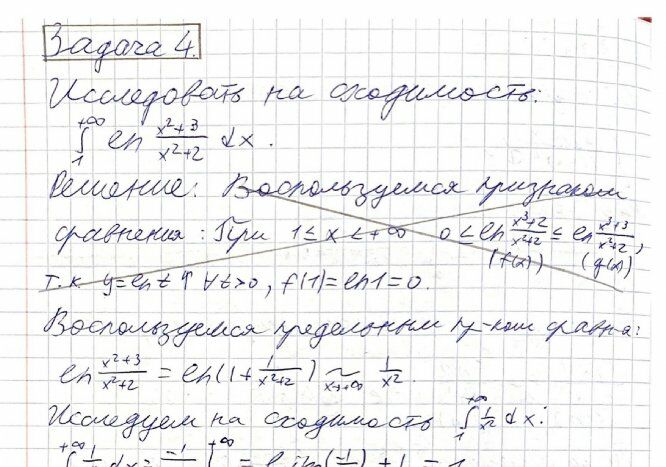 Задача 4.
Исследовать на сходимость:
∫₁^{+∞} ln (x²+3)/(x²+2) dx.
Решение: Воспользуемся признаком
сравнения: При 1 ≤ x ≤ +∞ 0 ≤ ln (x³+2)/(x²+2) ≤ ln (x³+3)/(x²+2),
(f(x)) (g(x))
т.к y = ln t ↑ ∀t>0, f(1) = ln1 = 0.
Воспользуемся предельным пр-ком сравн-я:
ln (x²+3)/(x²+2) = ln(1 + 1/(x²+2)) ~_{x→+∞} 1/x².
Исследуем на сходимость ∫₁^{+∞} 1/x² dx: